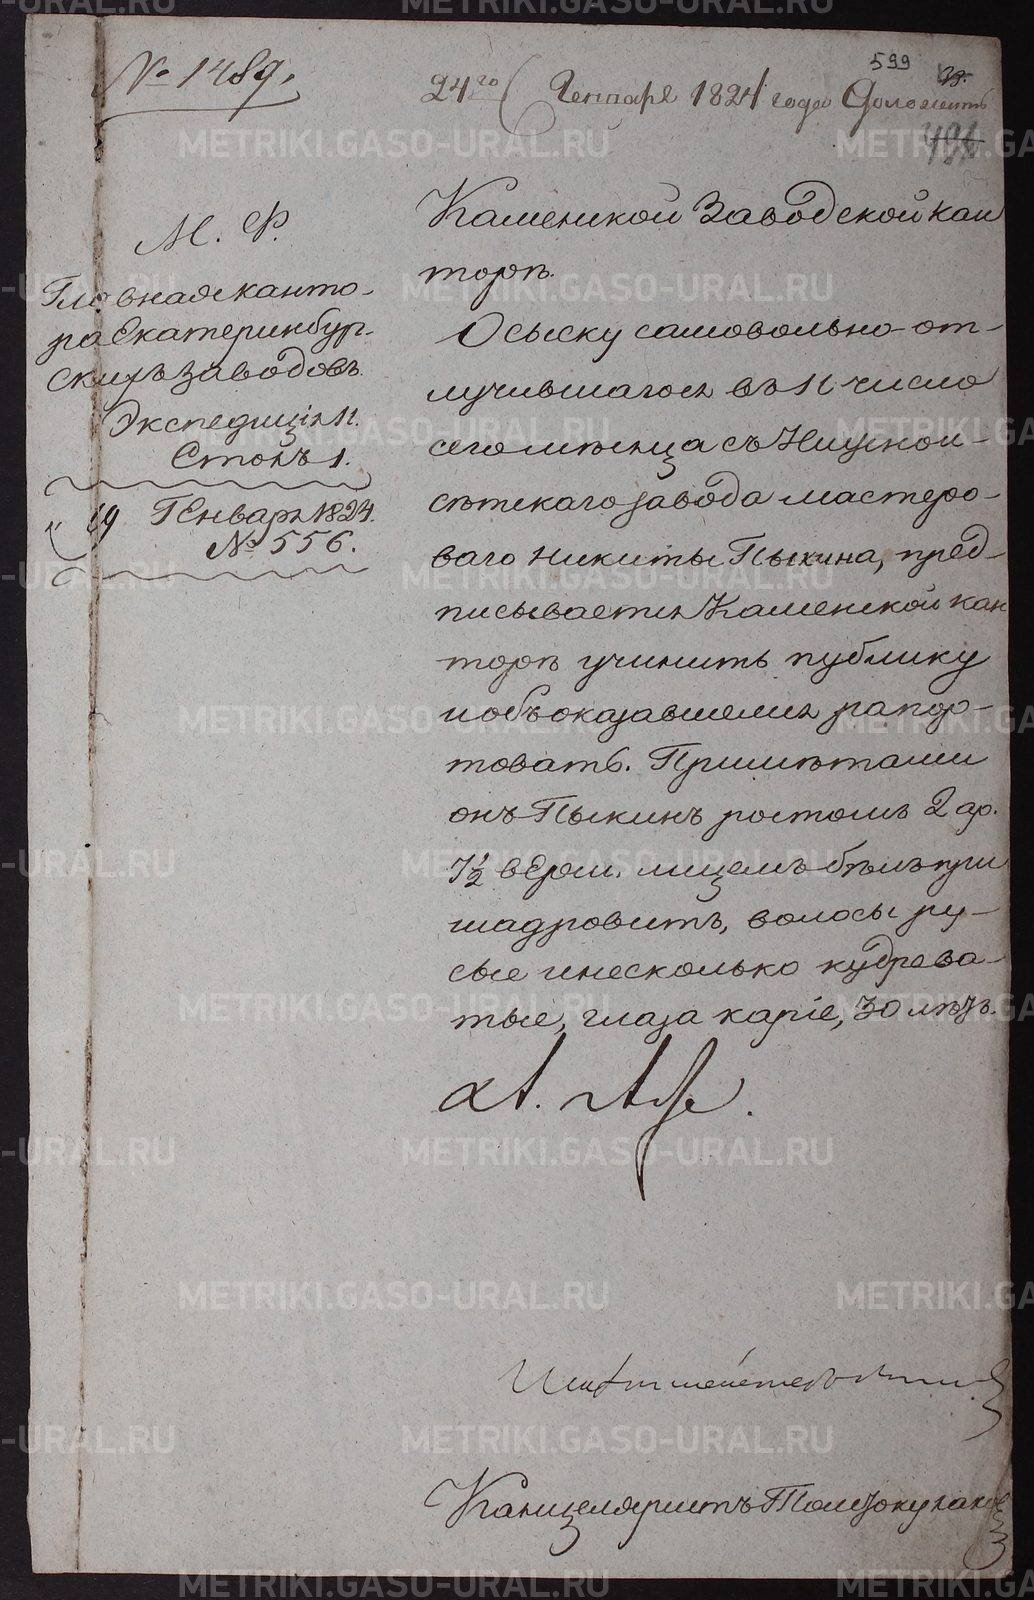 № 1489.
24го Генваря 1824 года Доложить
599
М. Ф.
Главная канто-
ра Екатеринбур-
скихъ заводовъ.
Экспедиція II.
Столъ 1.
19 Генваря 1824.
№ 556.
Каменской Заводской кан
торѣ.
О сыску самовольно от-
лучившагося въ 11 число
сего мѣсяца съ Нижнои-
сѣтскаго завода мастеро-
ваго Никиты Пыкина, пред-
писывается Каменской кан
торѣ учинить публику
и объ оказавшемся рапор-
товать. Примѣтами
онъ Пыкинъ ростомъ 2 ар.
7½ верш. лицемъ бѣлъ при
шадровитъ, волосы ру-
сые и несколько кудрева-
тые, глаза каріе, 30 лѣтъ.
Канцеляристъ
METRIKI.GASO-URAL.RU